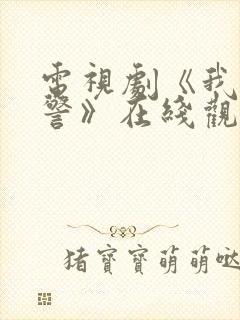 電視劇《我
警》在綫觀
猪寶寶萌萌哒